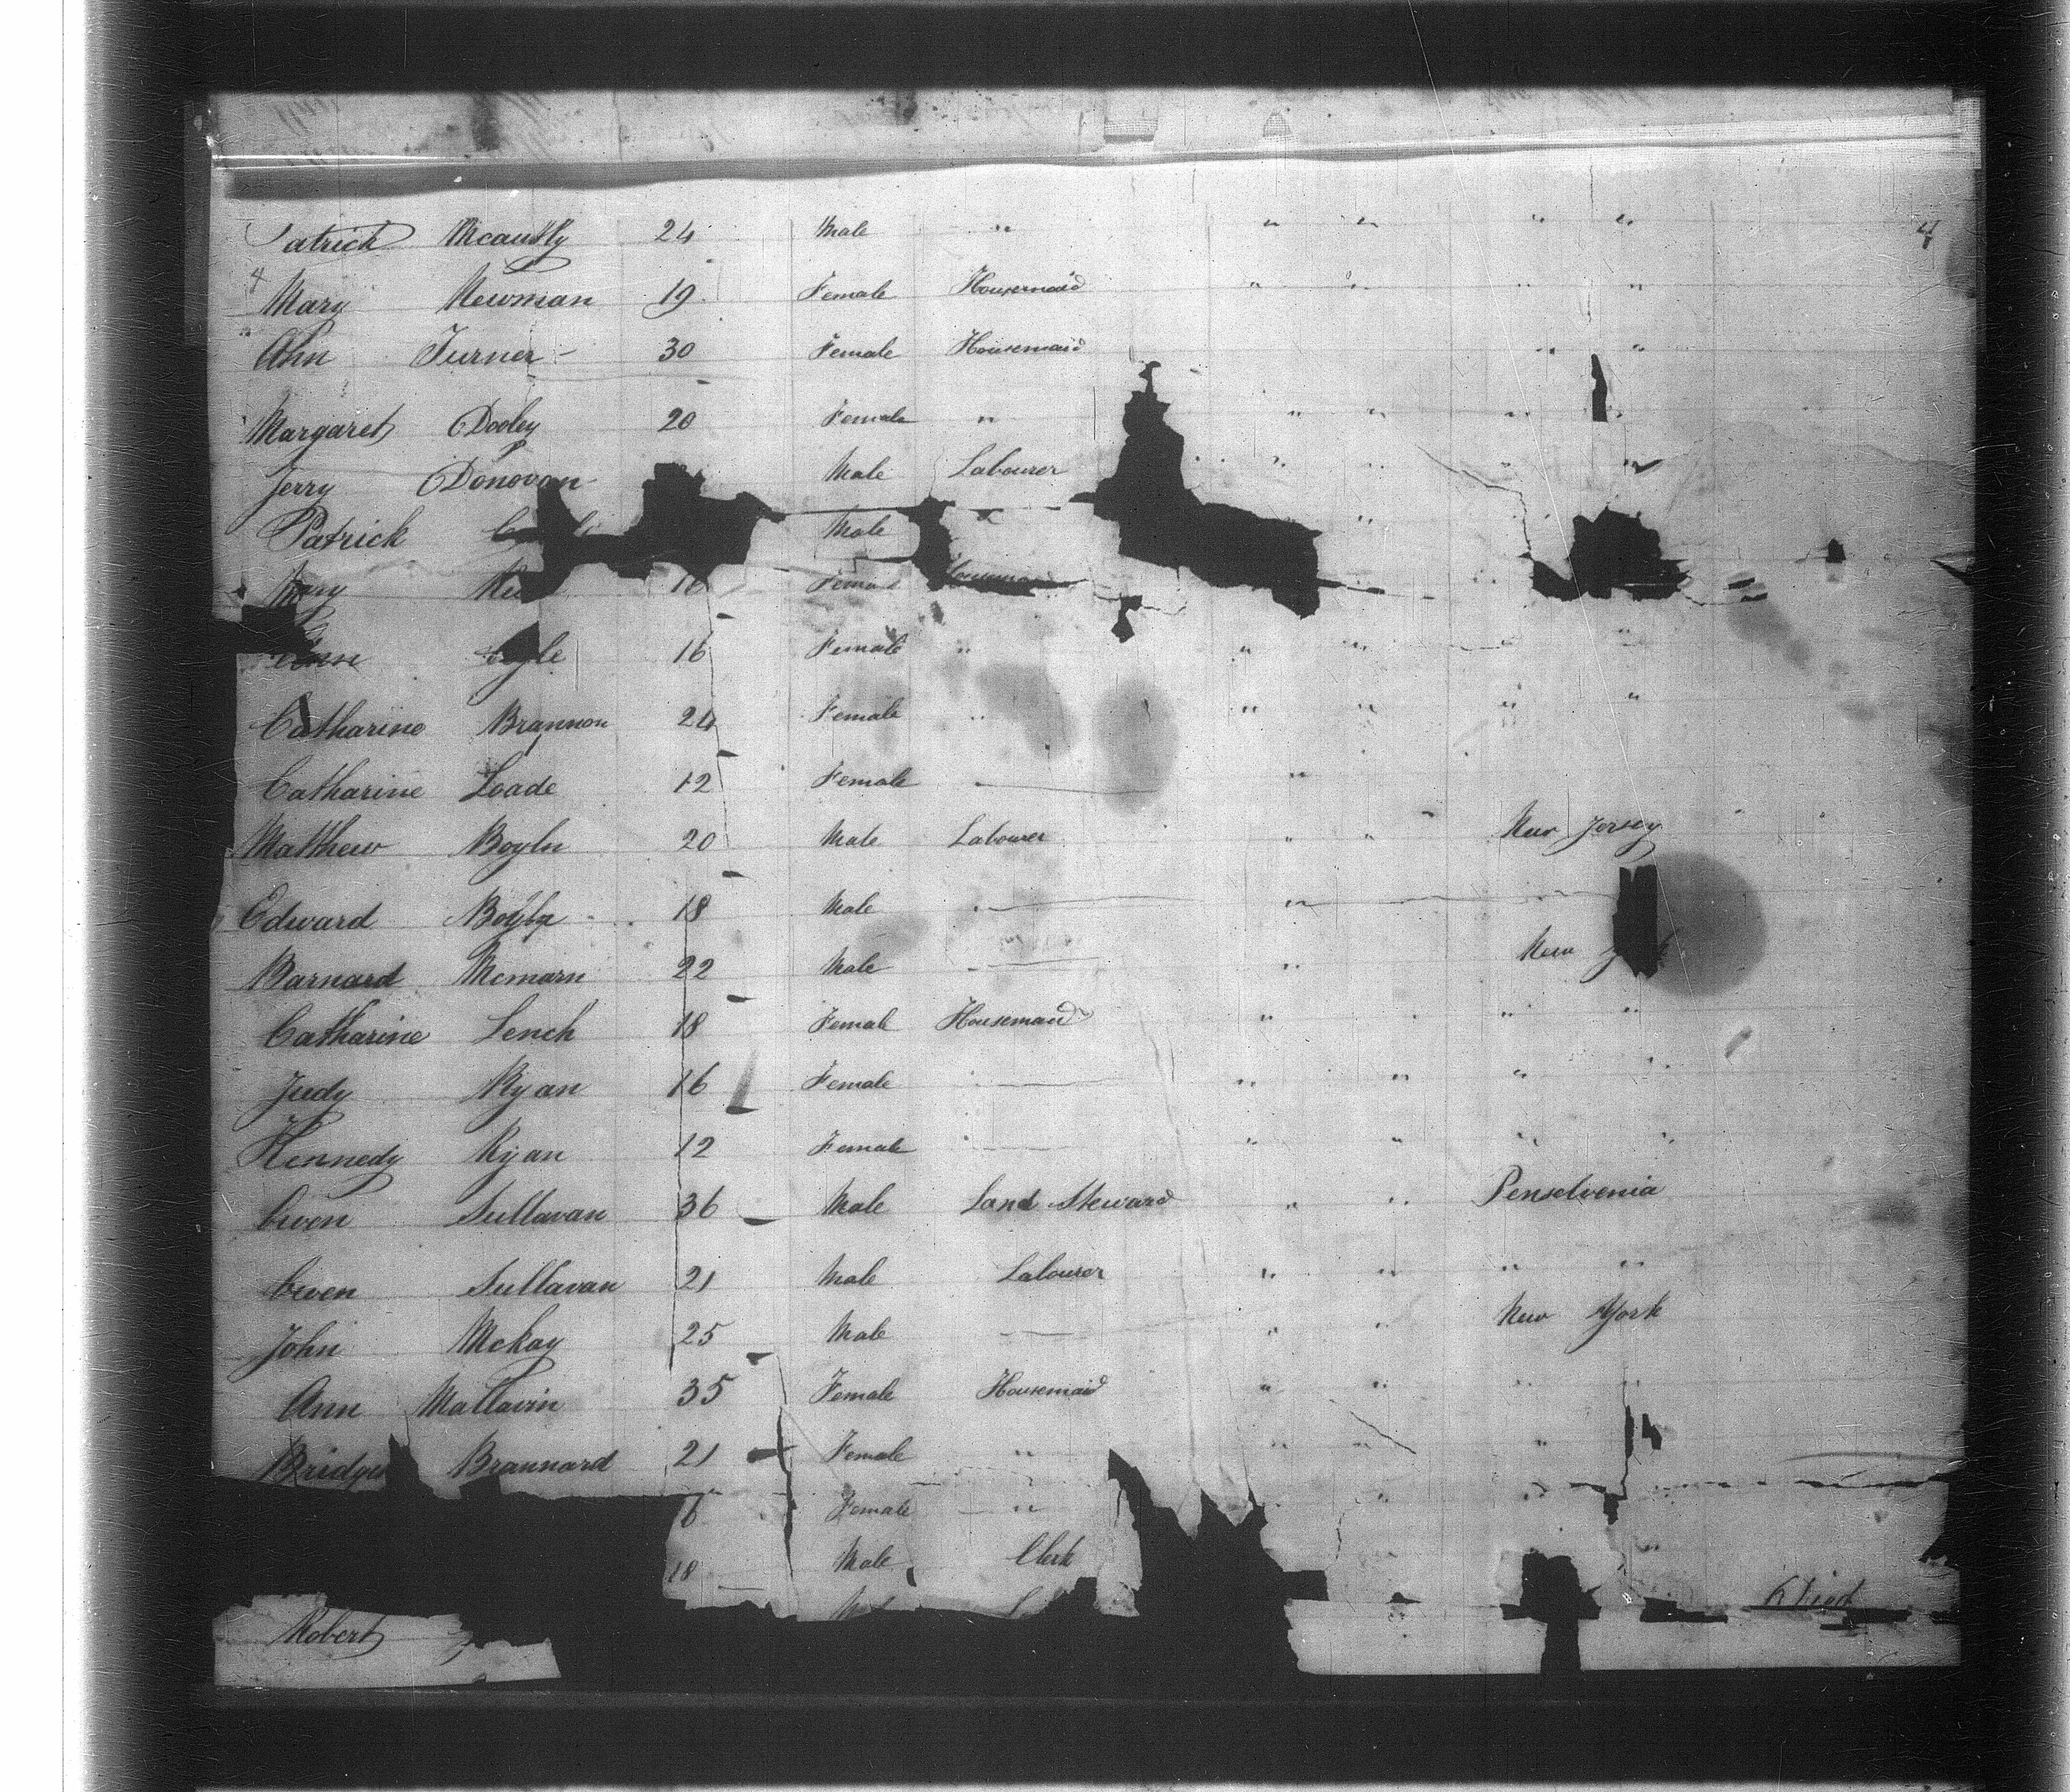 Patrick Mcaully 24 Male " " " " " 4
4
Mary Newman 19 Female Housemaid " " " "
Ann Turner - 30 Female Housemaid " "
Margaret Dooley 20 Female " " " " "
Jerry Donovan Male Labourer " " " "
Patrick Male " "
Mary 16 Female
Ann 16 Female " " " "
Catharine Brannon 24 Female " " " " "
Catharine Loade 12 Female "
Matthew Boyln 20 Male Labourer " " New Jersey
Edward 18 Male "
Barnard Mcmarn 22 Male " New
Catharine Lench 18 Female Housemaid " " "
Judy Ryan 16 Female " " " "
Kennedy Ryan 12 Female " " " "
Owen Sullavan 36 Male Land Steward " " Penselvenia
Owen Sullavan 21 Male Labourer " " " "
John Mckay 25 Male " " New York
Ann Mallavin 35 Female Housemaid " " " "
Brannard 21 Female " " " "
Female " " "
18 Male Clerk "
Died
Robert